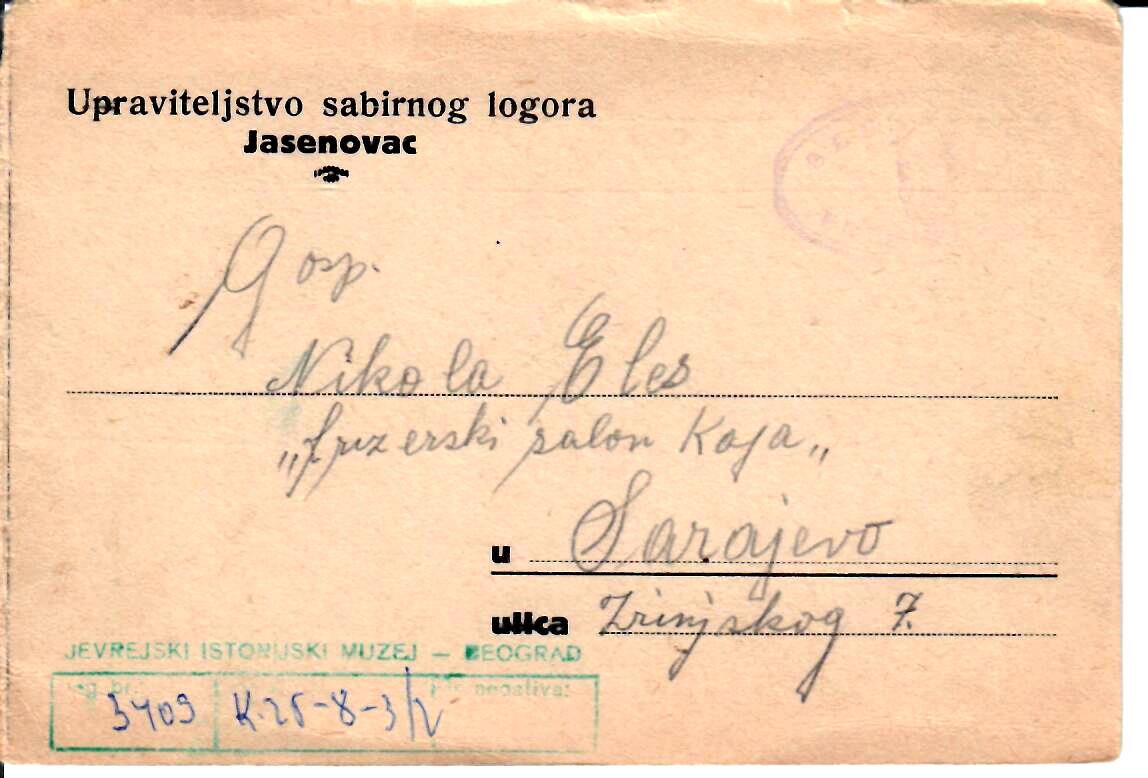 Upraviteljstvo sabirnog logora
Jasenovac
Gosp.
Nikola Eles
„frizerski salon Kaja„
u Sarajevo
ulica Zrinjskog 7.
JEVREJSKI ISTORIJSKI MUZEJ — BEOGRAD
eg. br. negativa:
3409 K.25-8-3/2